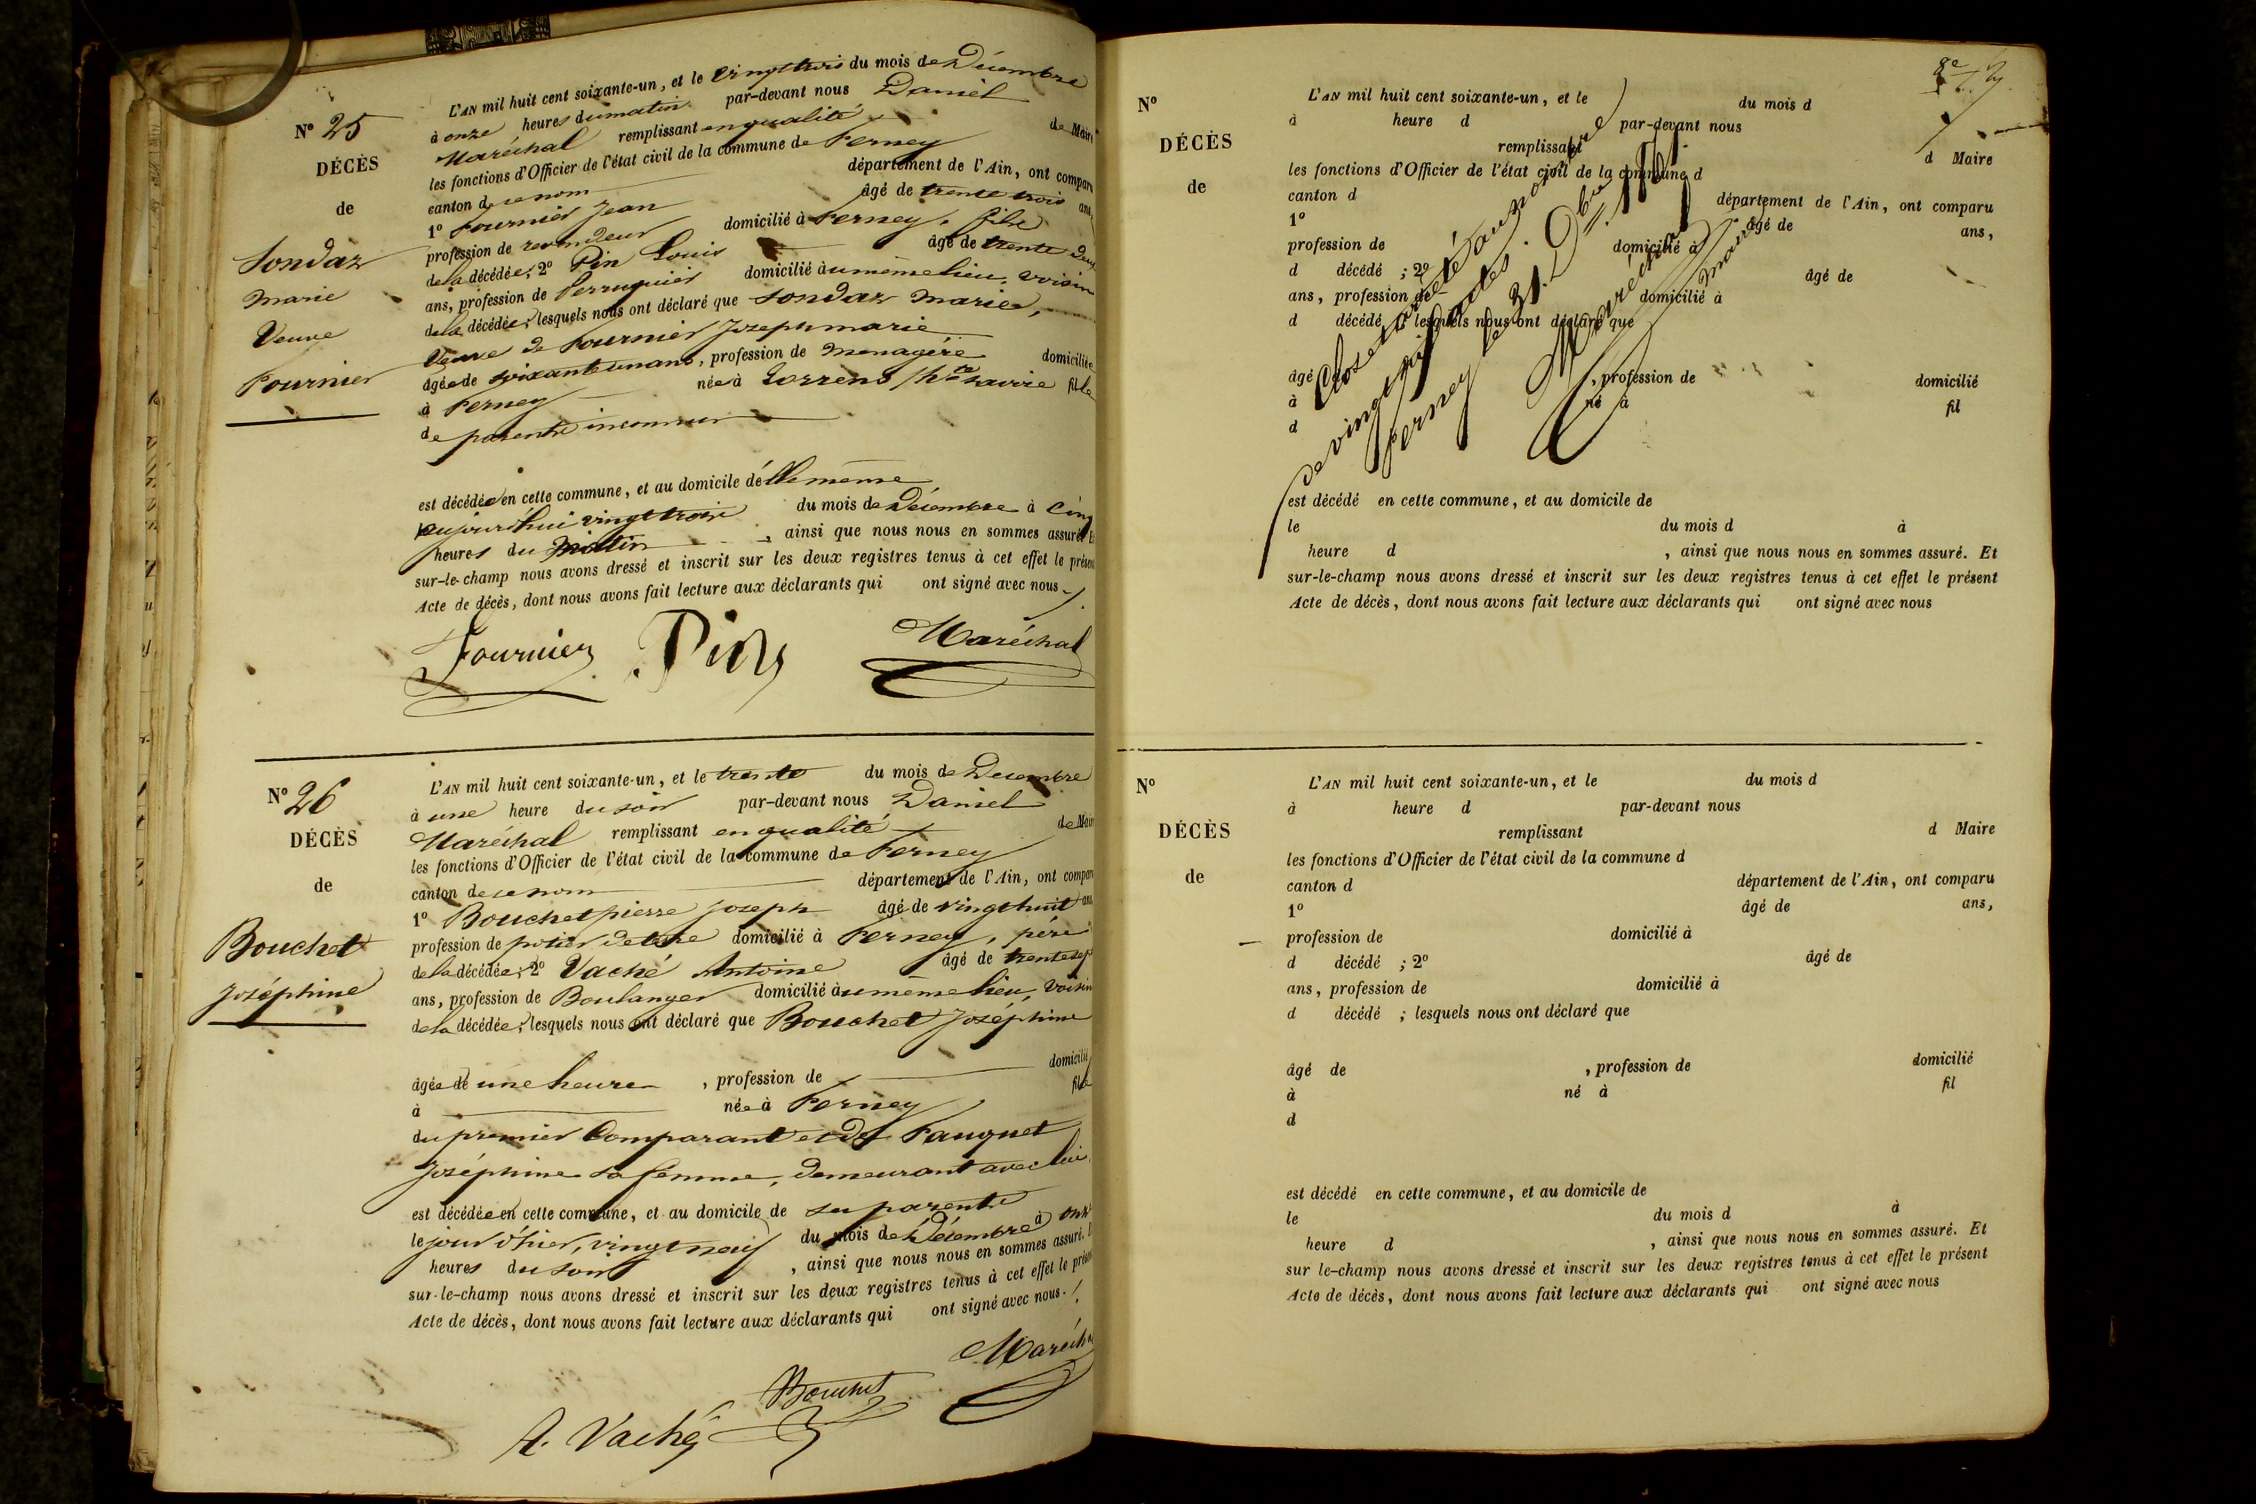 N° 25
DÉCÈS
de
Sondaz
Marie
Veuve
Fournier
L'AN mil huit cent soixante-un, et le vingt trois du mois de Décembre
à onze heures du matin par-devant nous Daniel
Maréchal remplissant en qualité de Maire
les fonctions d'Officier de l'état civil de la commune de Ferney
canton de ce nom département de l'Ain, ont comparu
1° Fournier Jean âgé de trente trois ans,
profession de revendeur domicilié à Ferney, fils
de la décédée; 2° Pin Louis âgé de trente deux
ans, profession de Perruquier domicilié au même lieu, voisin
de la décédée; lesquels nous ont déclaré que Sondaz Marie,
Veuve de Fournier Joseph marie
âgée de soixante un ans, profession de menagère domiciliée
à Ferney née à Lorrens /hte Savoie fille
de parents inconnus
est décédée en cette commune, et au domicile d'elle même
aujourd'hui vingt trois du mois de Décembre à cinq
heures du Matin, ainsi que nous nous en sommes assuré. Et
sur-le-champ nous avons dressé et inscrit sur les deux registres tenus à cet effet le présent
Acte de décès, dont nous avons fait lecture aux déclarants qui ont signé avec nous./.
Fournier Pin Maréchal
N° 26
DÉCÈS
de
Bouchet
Joséphine
L'AN mil huit cent soixante-un, et le trente du mois de Decembre
à une heure du soir par-devant nous Daniel
Maréchal remplissant en qualité de Maire
les fonctions d'Officier de l'état civil de la commune de Ferney
canton de ce nom département de l'Ain, ont comparu
1° Bouchet pierre joseph âgé de vingt huit ans
profession de potier de terre domicilié à Ferney, père
de la décédée; 2° Vaché Antoine âgé de trente sept
ans, profession de Boulanger domicilié au même lieu, voisin
de la décédée; lesquels nous ont déclaré que Bouchet Joséphine
âgée de une heure, profession de domicilié
à née à Ferney fille
du premier Comparant et de Fauquet
Joséphine sa femme, demeurant avec lui.
est décédée en cette commune, et au domicile de ses parents
le jour d'hier, vingt neuf du mois de Décembre à onze
heures du soir, ainsi que nous nous en sommes assuré. Et
sur-le-champ nous avons dressé et inscrit sur les deux registres tenus à cet effet le présent
Acte de décès, dont nous avons fait lecture aux déclarants qui ont signé avec nous./.
Maréchal
Bouchet
A. Vaché
N°
DÉCÈS
de
L'AN mil huit cent soixante-un, et le du mois d
à heure d par-devant nous
remplissant d Maire
les fonctions d'Officier de l'état civil de la commune d
canton d département de l'Ain, ont comparu
1° âgé de ans,
profession de domicilié à
d décédé ; 2° âgé de
ans, profession de domicilié à
d décédé ; lesquels nous ont déclaré que
âgé de , profession de domicilié
à né à fil
d
est décédé en cette commune, et au domicile de
le du mois d à
heure d , ainsi que nous nous en sommes assuré. Et
sur-le-champ nous avons dressé et inscrit sur les deux registres tenus à cet effet le présent
Acte de décès, dont nous avons fait lecture aux déclarants qui ont signé avec nous
Clos et arrêté au nombre
de vingt six actes.
Ferney le 31. Xbre 1861.
Maréchal
Maire
N°
DÉCÈS
de
L'AN mil huit cent soixante-un, et le du mois d
à heure d par-devant nous
remplissant d Maire
les fonctions d'Officier de l'état civil de la commune d
canton d département de l'Ain, ont comparu
1° âgé de ans,
profession de domicilié à
d décédé ; 2° âgé de
ans, profession de domicilié à
d décédé ; lesquels nous ont déclaré que
âgé de , profession de domicilié
à né à fil
d
est décédé en cette commune, et au domicile de
le du mois d à
heure d , ainsi que nous nous en sommes assuré. Et
sur le-champ nous avons dressé et inscrit sur les deux registres tenus à cet effet le présent
Acte de décès, dont nous avons fait lecture aux déclarants qui ont signé avec nous